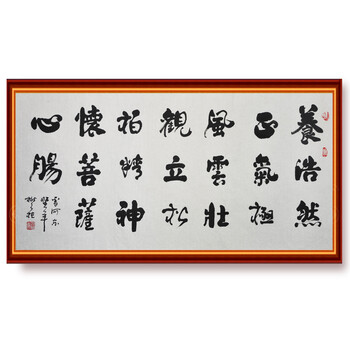 養浩然
正氣極
風雲壯
觀立松
柏精神
懷菩薩
心腸